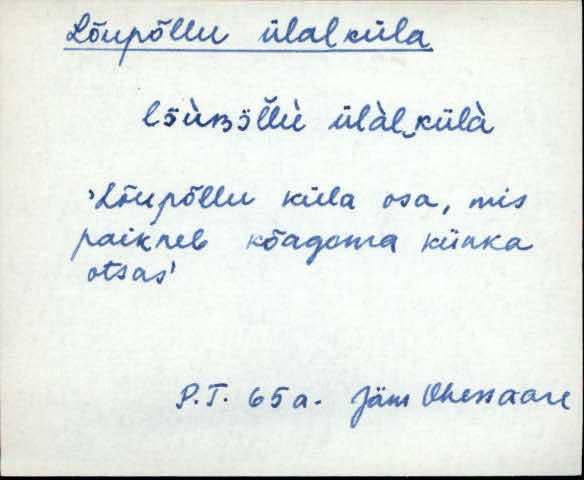 Lõupõllu ülalküla
lȭùʙȭl̆lù ülàl‿külà
'Lõupõllu küla osa, mis
paikneb kõagoma künka
otsas'
P.T. 65a. Jäm Ohessaare